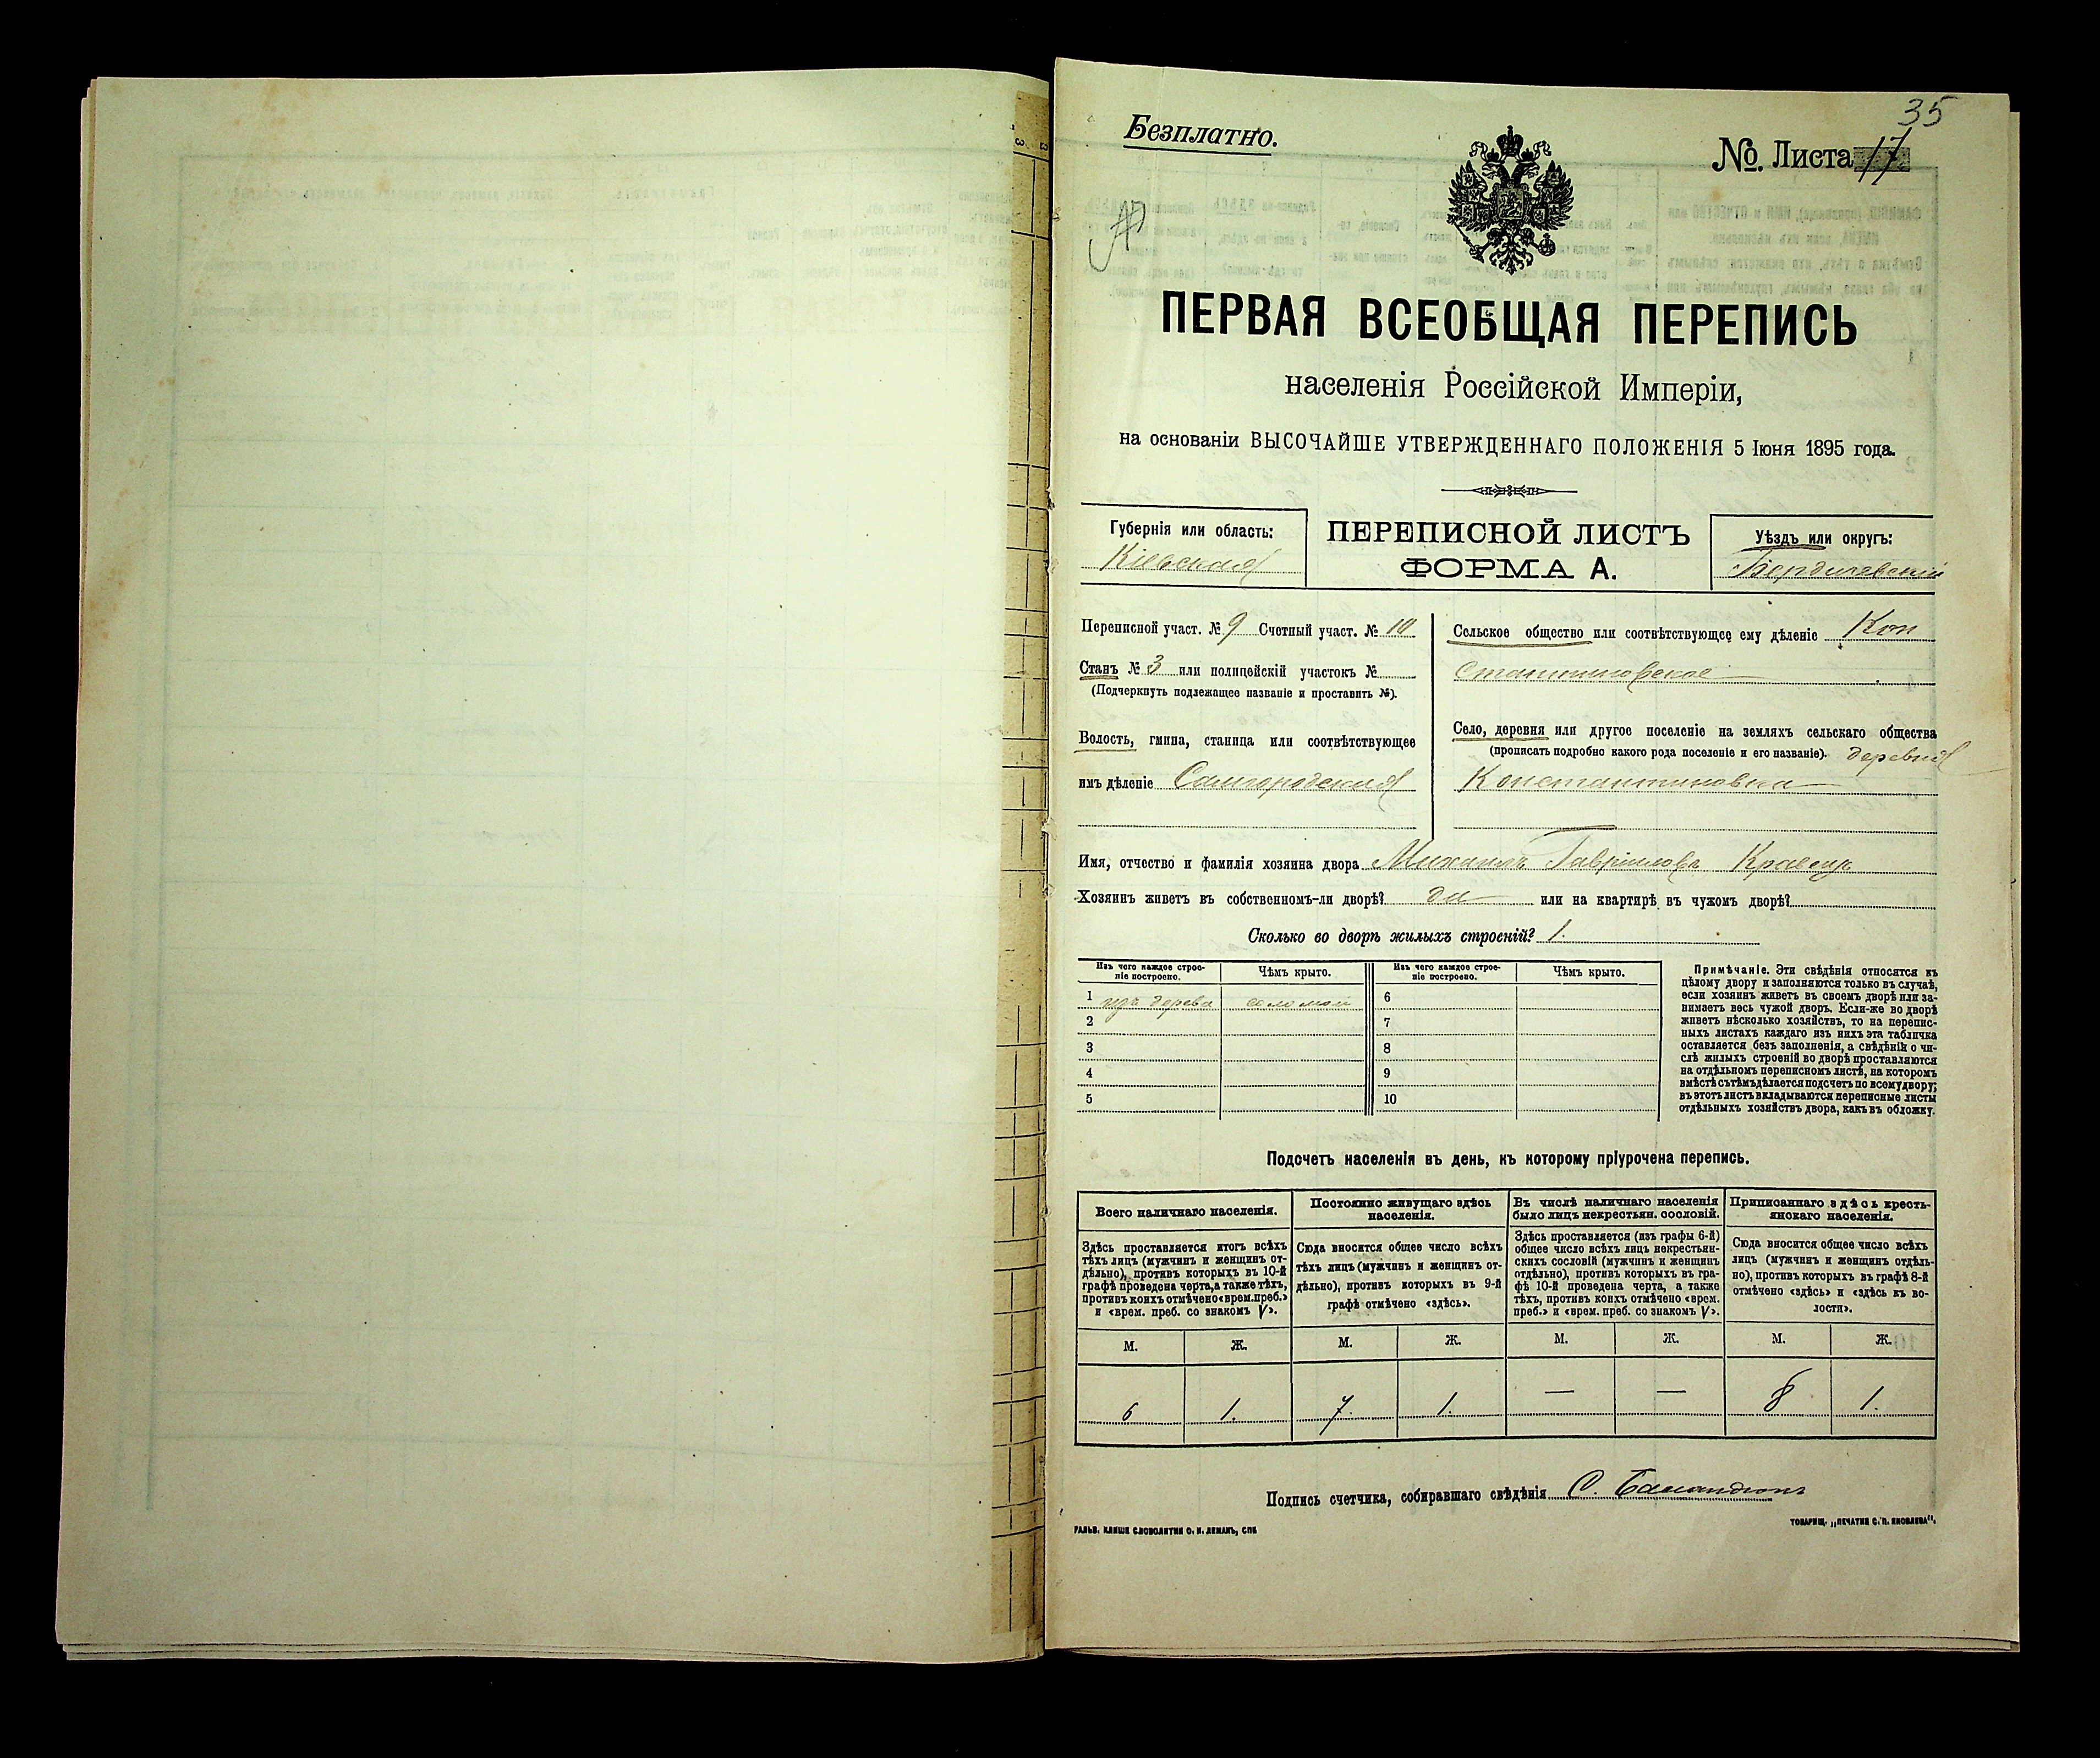 35
Безплатно.
№. Листа 17.
ПЕРВАЯ ВСЕОБЩАЯ ПЕРЕПИСЬ
населенія Россійской Имперіи,
на основаніи ВЫСОЧАЙШЕ УТВЕРЖДЕННАГО ПОЛОЖЕНІЯ 5 Іюня 1895 года.
Губернія или область:
Кіевская
ПЕРЕПИСНОЙ ЛИСТЪ
ФОРМА А.
Уѣздъ или округъ:
Бердичевскій
Переписной участ. № 9 Счетный участ. № 10
Станъ № 3 или полицейскій участокъ №
(Подчеркнуть подлежащее названіе и проставить №).
Волость, гмина, станица или соотвѣтствующее
имъ дѣленіе Самгородская
Сельское общество или соотвѣтствующее ему дѣленіе Кон
стантиновское
Село, деревня или другое поселеніе на земляхъ сельскаго общества
(прописать подробно какого рода поселеніе и его названіе). деревня
Константиновка
Имя, отчество и фамилія хозяина двора Михаилъ Гавріиловъ Кравецъ
Хозяинъ живетъ въ собственномъ-ли дворѣ? да или на квартирѣ въ чужомъ дворѣ?
Сколько во дворѣ жилыхъ строеній? 1.
Изъ чего каждое строе-
ніе построено.
Чѣмъ крыто.
Изъ чего каждое строе-
ніе построено.
Чѣмъ крыто.
1 изъ дерева соломой 6
2 7
3 8
4 9
5 10
Примѣчаніе. Эти свѣдѣнія относятся къ
цѣлому двору и заполняются только въ случаѣ,
если хозяинъ живетъ въ своемъ дворѣ или за-
нимаетъ весь чужой дворъ. Если-же во дворѣ
живетъ нѣсколько хозяйствъ, то на перепис-
ныхъ листахъ каждаго изъ нихъ эта табличка
оставляется безъ заполненія, а свѣдѣнія о чи-
слѣ жилыхъ строеній во дворѣ проставляются
на отдѣльномъ переписномъ листѣ, на которомъ
вмѣстѣ съ тѣмъ дѣлается подсчетъ по всему двору;
въ этотъ листъ вкладываются переписные листы
отдѣльныхъ хозяйствъ двора, какъ въ обложку.
Подсчетъ населенія въ день, къ которому пріурочена перепись.
Всего наличнаго населенія.
Здѣсь проставляется итогъ всѣхъ
тѣхъ лицъ (мужчинъ и женщинъ от-
дѣльно), противъ которыхъ въ 10-й
графѣ проведена черта, а также тѣхъ,
противъ коихъ отмѣчено «врем. преб.»
и «врем. преб. со знакомъ V».
Постоянно живущаго здѣсь
населенія.
Сюда вносится общее число всѣхъ
тѣхъ лицъ (мужчинъ и женщинъ от-
дѣльно), противъ которыхъ въ 9-й
графѣ отмѣчено «здѣсь».
Въ числѣ наличнаго населенія
было лицъ некрестьян. сословій.
Здѣсь проставляется (изъ графы 6-й)
общее число всѣхъ лицъ некрестьян-
скихъ сословій (мужчинъ и женщинъ
отдѣльно), противъ которыхъ въ гра-
фѣ 10-й проведена черта, а также
тѣхъ, противъ коихъ отмѣчено «врем.
преб.» и «врем. преб. со знакомъ V».
Приписаннаго здѣсь кресть-
янскаго населенія.
Сюда вносится общее число всѣхъ
лицъ (мужчинъ и женщинъ отдѣль-
но), противъ которыхъ въ графѣ 8-й
отмѣчено «здѣсь» и «здѣсь къ во-
лости».
М. Ж. М. Ж. М. Ж. М. Ж.
6 1. 7. 1. — — 8 1.
Подпись счетчика, собиравшаго свѣдѣнія С.
ГАЛЬВ. КЛИШЕ СЛОВОЛИТНИ О. И. ЛЕМАНЪ, СПБ
ТОВАРИЩ. „ПЕЧАТНЯ С. П. ЯКОВЛЕВА".